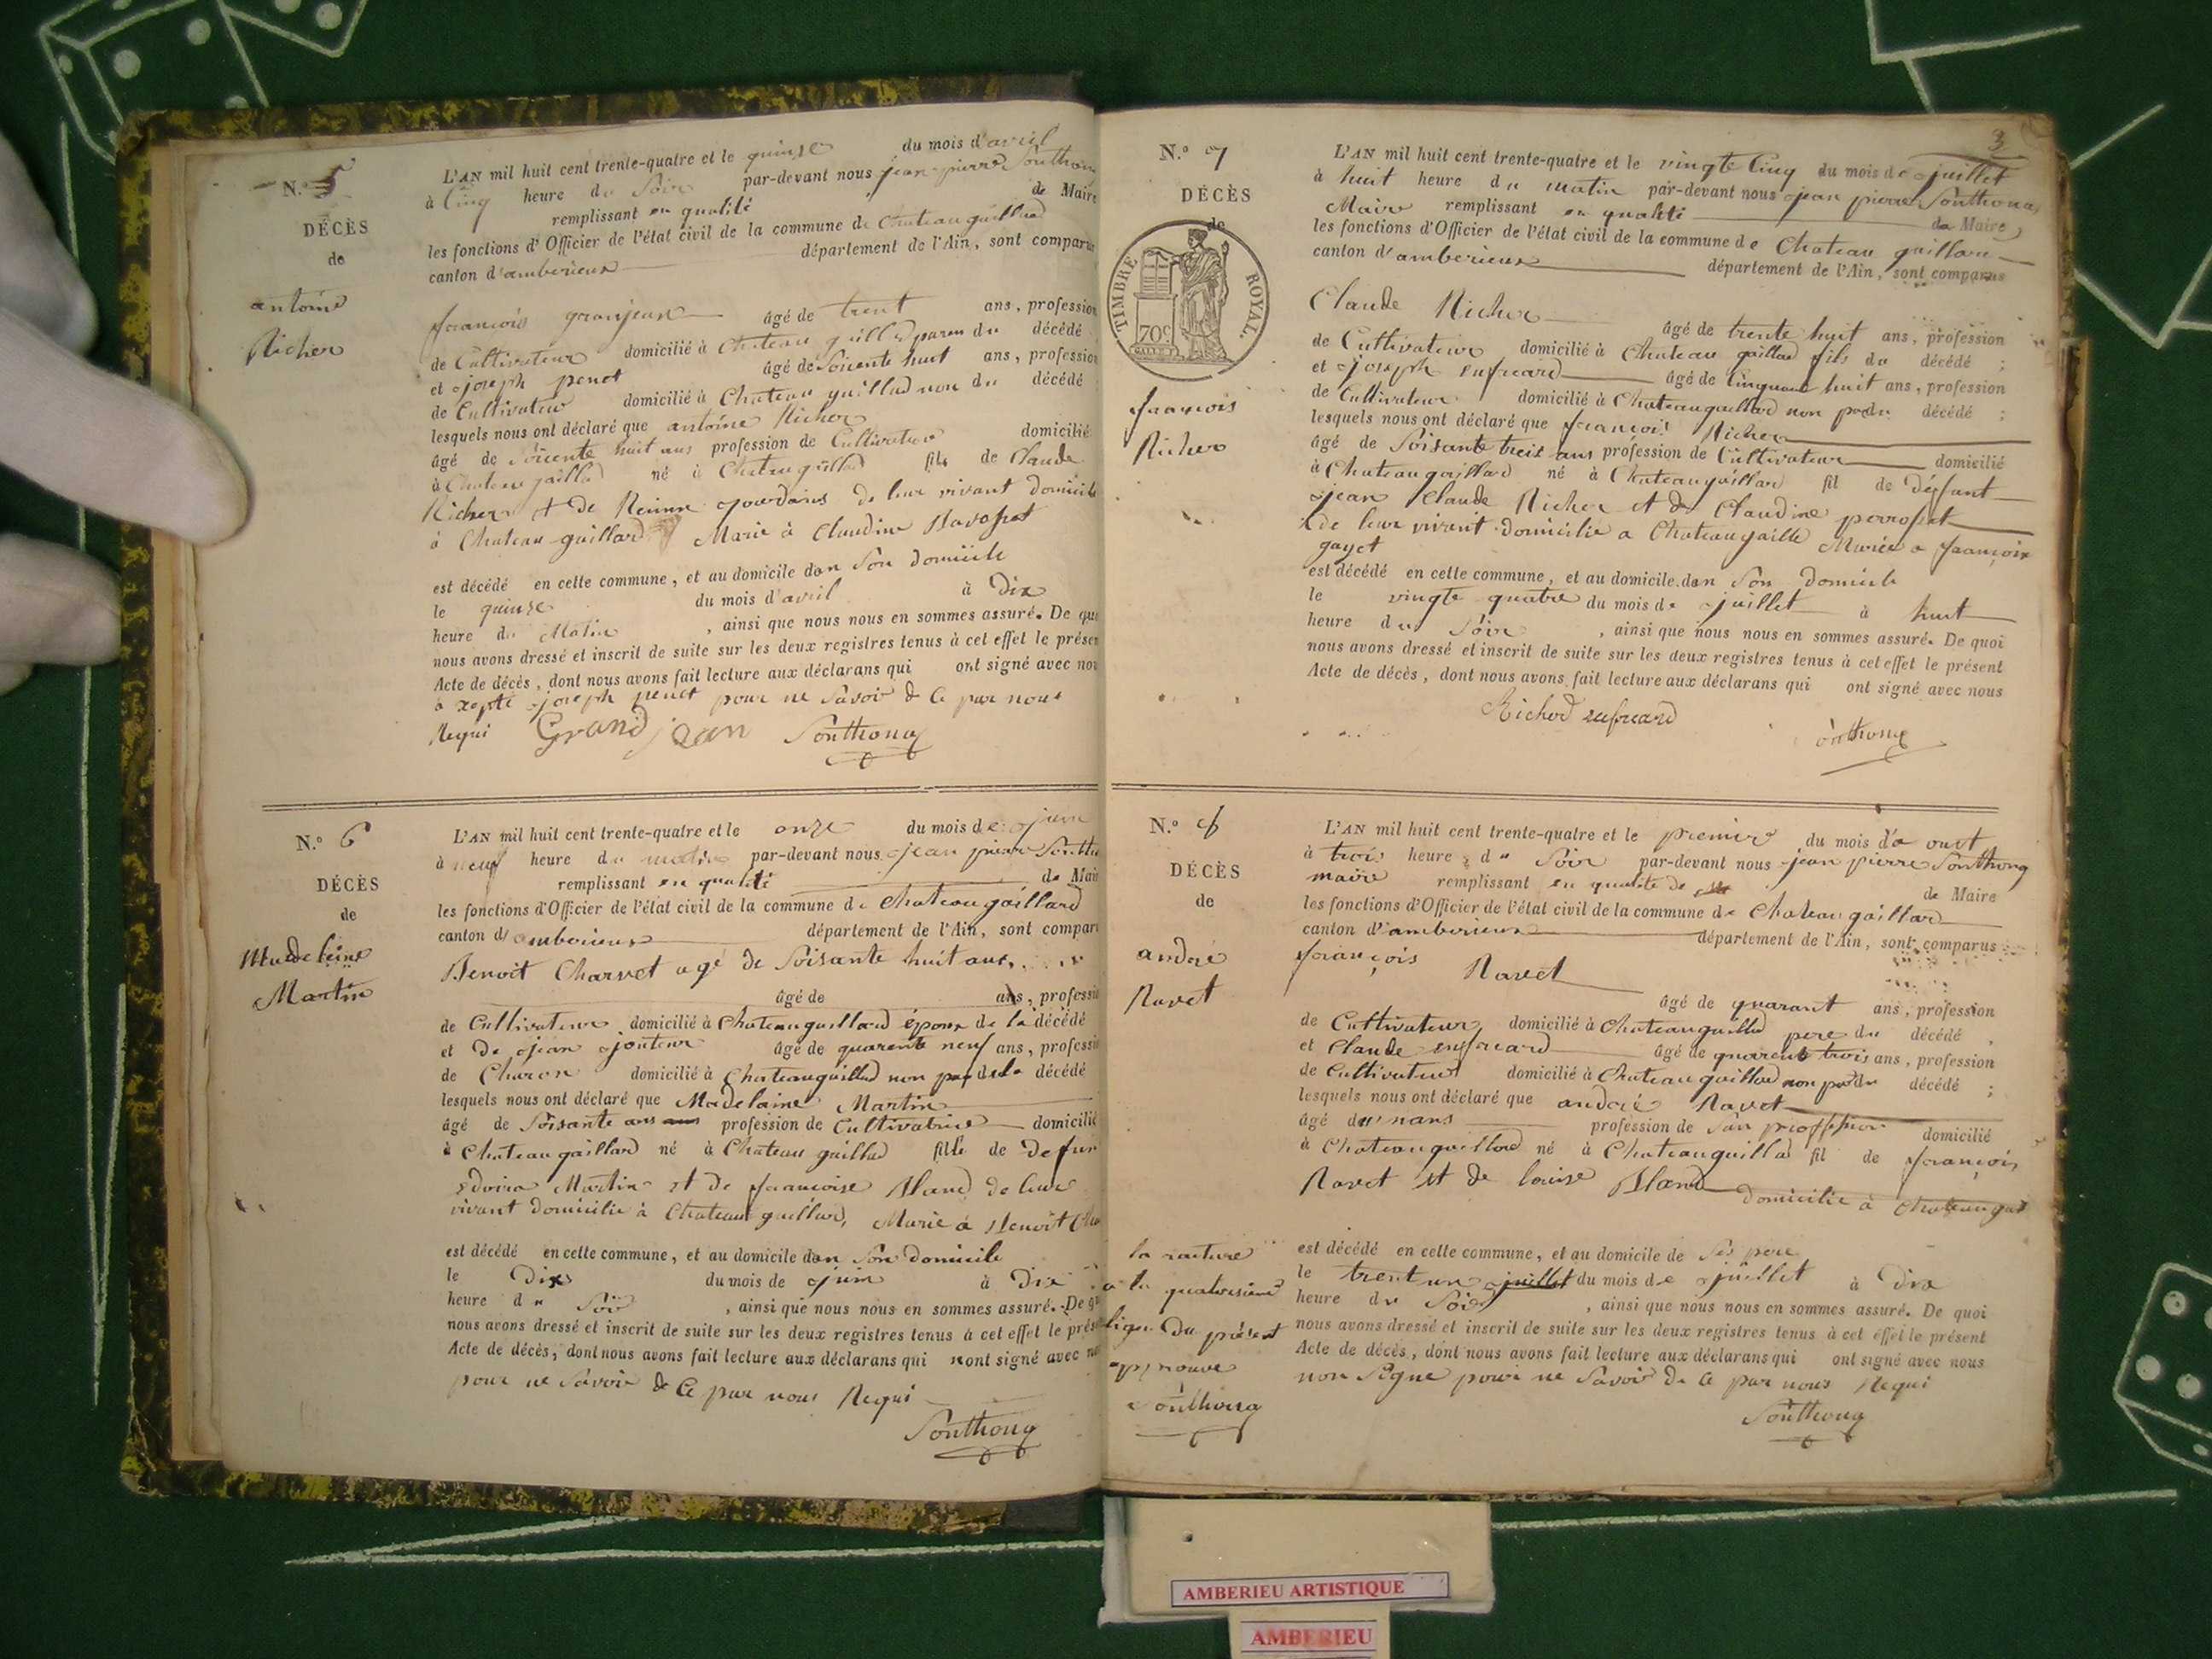 N.° 5
DÉCÈS
de
antoine
Richer
L'AN mil huit cent trente-quatre et le quinze du mois d'avril
à Cinq heure du Soir par-devant nous jean pierre Sonthona
remplissant en qualité de Maire
les fonctions d'Officier de l'état civil de la commune de Chateaugaillard
canton d'amberieux département de l'Ain, sont comparus
francois granjean âgé de trent ans, profession
de Cultivateur domicilié à Chateau gaillad du décédé
et joseph penet âgé de Soicente huit ans, profession
de Cultivateur domicilié à Chateau gaillad non du décédé
lesquels nous ont déclaré que antoine Richer
âgé de Soicente huit ans profession de Cultivateur domicilié
à Chateau gaillad né à Chateaugaillad fils de Claude
Richer et de Reinne jourdains de leur vivant domicile
à Chateau gaillard Marié à Claudine
est décédé en cette commune, et au domicile dan Son domicile
le quinze du mois d'avril à Dix
heure du Matin, ainsi que nous nous en sommes assuré. De quoi
nous avons dressé et inscrit de suite sur les deux registres tenus à cet effet le présen
Acte de décès, dont nous avons fait lecture aux déclarans qui ont signé avec nou
joseph penet pour ne Savoir de Ce par nous
Requi Grandjean Sonthona
N.° 6
DÉCÈS
de
Madeleine
Martin
L'AN mil huit cent trente-quatre et le onze du mois de juin
à neuf heure du matin par-devant nous jean pierre Sontho
remplissant en qualité de Mair
les fonctions d'Officier de l'état civil de la commune de Chateaugaillard
canton d'amberieux département de l'Ain, sont compar
Benoit Charvet agé de Soisante huit ans,
âgé de ans, professio
de Cultivateur domicilié à Chateaugaillard époux de la décédé
et De jean jonteur âgé de quarente neuf ans, professio
de Charon domicilié à Chateaugaillad non par dela décédé
lesquels nous ont déclaré que Madelaine Martin
âgé de Soisante ans profession de Cultivatrice domicilié
à Chateaugaillard né à Chateau gaillad fille de Defun
Martin et de francoise Bland de leur
vivant domicilie à Chateau gaillard, Marie à Benoit Cha
est décédé en cette commune, et au domicile dan Son domicile
le Dixs du mois de juin à Dix
heure du Soir, ainsi que nous nous en sommes assuré. De qu
nous avons dressé et inscrit de suite sur les deux registres tenus à cet effet le prése
Acte de décès, dont nous avons fait lecture aux déclarans qui nont signé avec no
pour ne Savoir de Ce par nous Requi
Sonthona
3
N.° 7
DÉCÈS
de
TIMBRE ROYAL.
70c
françois
Richer
L'AN mil huit cent trente-quatre et le vingte Cinq du mois de juillet
à huit heure du matin par-devant nous jean pierre Sonthona
Maire remplissant en qualité de Maire
les fonctions d'Officier de l'état civil de la commune de Chateau gaillard
canton d'amberieux département de l'Ain, sont comparus
Claude Richer âgé de trente huit ans, profession
de Cultivateur domicilié à Chateau gaillad fils du décédé ;
et joseph enfreard âgé de Cinquant huit ans, profession
de Cultivateur domicilié à Chateaugaillard non par du décédé ;
lesquels nous ont déclaré que françois Richer
âgé de Soisante treis ans profession de Cultivateur domicilié
à Chateaugaillard né à Chateaugaillard fil de Déffant
jean Claude Richer et de Claudine perrosset
de leur vivent domicilie a Chateaugaille Mariée a françoise
gayet
est décédé en cette commune, et au domicile dan Son domicile
le vingte quatre du mois de juillet à huit
heure du Soir, ainsi que nous nous en sommes assuré. De quoi
nous avons dressé et inscrit de suite sur les deux registres tenus à cet effet le présent
Acte de décès, dont nous avons fait lecture aux déclarans qui ont signé avec nous
Richerd enfreard onthona
N.° 8
DÉCÈS
de
andré
Ravet
L'AN mil huit cent trente-quatre et le premier du mois d'a oust
à trois heure du Soir par-devant nous jean pierre Sonthona
maire remplissant en qualité de de Maire
les fonctions d'Officier de l'état civil de la commune de Chateau gaillard
canton d'amberieux département de l'Ain, sont comparus
françois Ravet âgé de quarant ans, profession
de Cultivateur domicilié à Chateaugaillad pere du décédé ,
et Claude enfreard âgé de quarent trois ans, profession
de Cultivateur domicilié à Chateaugaillad non par du décédé ;
lesquels nous ont déclaré que andré Ravet
âgé de un ans profession de San proffission domicilié
à Chateaugaillard né à Chateaugaillad fil de françois
Ravet et de louise Bland domicilie à Chateaugai
est décédé en cette commune, et au domicile de Ses pere
le trent un juillet du mois de juillet à Dix
heure du Soir, ainsi que nous nous en sommes assuré. De quoi
nous avons dressé et inscrit de suite sur les deux registres tenus à cet effet le présent
Acte de décès, dont nous avons fait lecture aux déclarans qui ont signé avec nous
non Signe pour ne Savoir de Ce par nous Requi
Sonthona
la rature
a la quatorsieme
ligne Du présent
approuve
Sonthona
AMBERIEU ARTISTIQUE
AMBERIEU